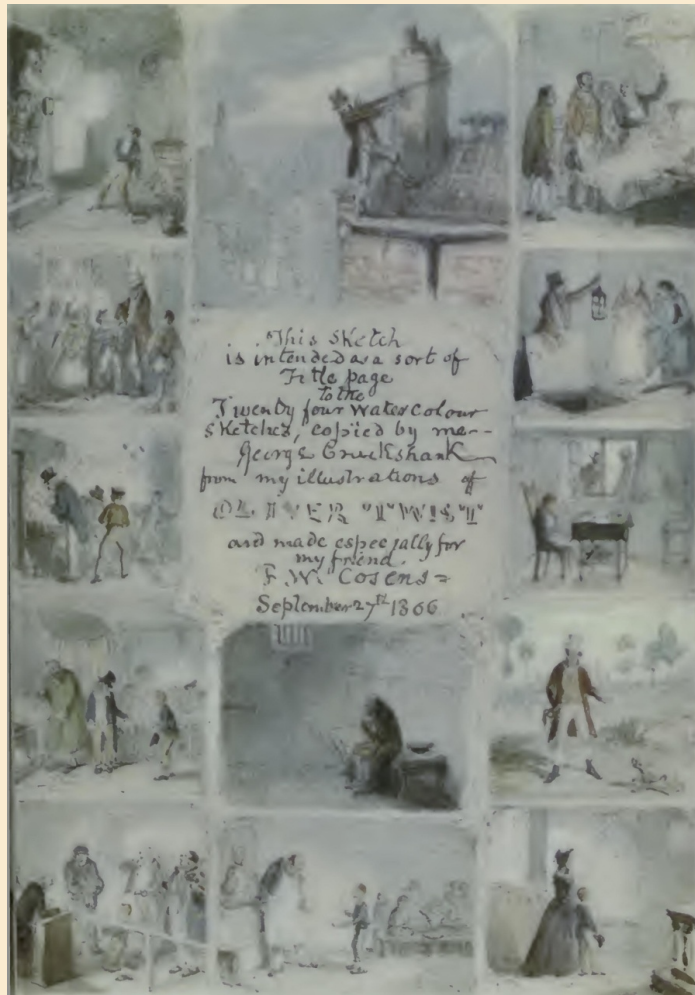 This Sketch
is intended as a sort of
Title page
to the
Twenty four Water Colour
Sketches, copied by me--
George Cruikshank
from my illustrations of
OLIVER TWIST
and made especially for
my friend.
F. W. Cosens=
September 27th 1866